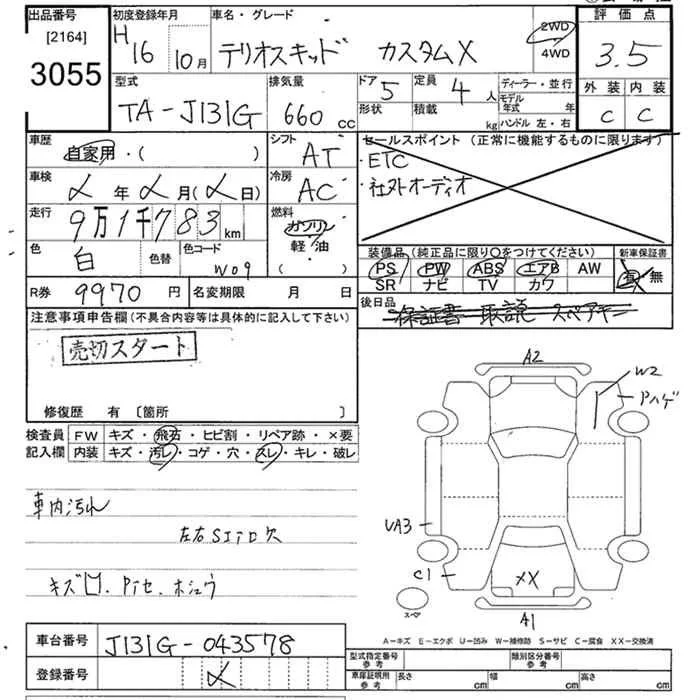 出品番号 初度登録年月 車名・グレード 評価点
[2164]
3055
H16 10月 テリオスキッド カスタムX 2WD 3.5
4WD
型式 排気量 ドア 定員 ディーラー・並行 外装 内装
TA-J131G 660 cc 5 4人 モデル年式 年 C C
形状 積載 kg ハンドル 左・右
車歴 シフト セールスポイント (正常に機能するものに限ります)
自家用・( ) AT ・ETC
車検 冷房 ・社外オーディオ
〆年〆月(〆日) AC
走行 燃料
9万1千783km ガソリン
色 色替 色コード 軽・油
白 W09 ( )
装備品 (純正品に限り○をつけてください) 新車保証書
PS PW ABS エアB AW 有・無
SR ナビ TV カワ
R券 9970円 名変期限 月 日 後日品
保証書 取説 スペアキー
注意事項申告欄(不具合内容等は具体的に記入して下さい)
売切スタート
修復歴 有 〔箇所 〕
検査員 FW キズ・飛石・ヒビ割・リペア跡・×要
記入欄 内装 キズ・汚レ・コゲ・穴・スレ・キレ・破レ
車内汚れ
左右
キズ凹
A2
W2
UA3
C1
XX
A1
スペア
A-キズ E-エクボ U-凹み W-補修跡 S-サビ C-腐食 XX-交換済
車台番号 J131G-043578
登録番号 〆
型式指定番号 参考 類別区分番号 参考
車庫証明用 参考 長さ cm 幅 cm 高さ cm